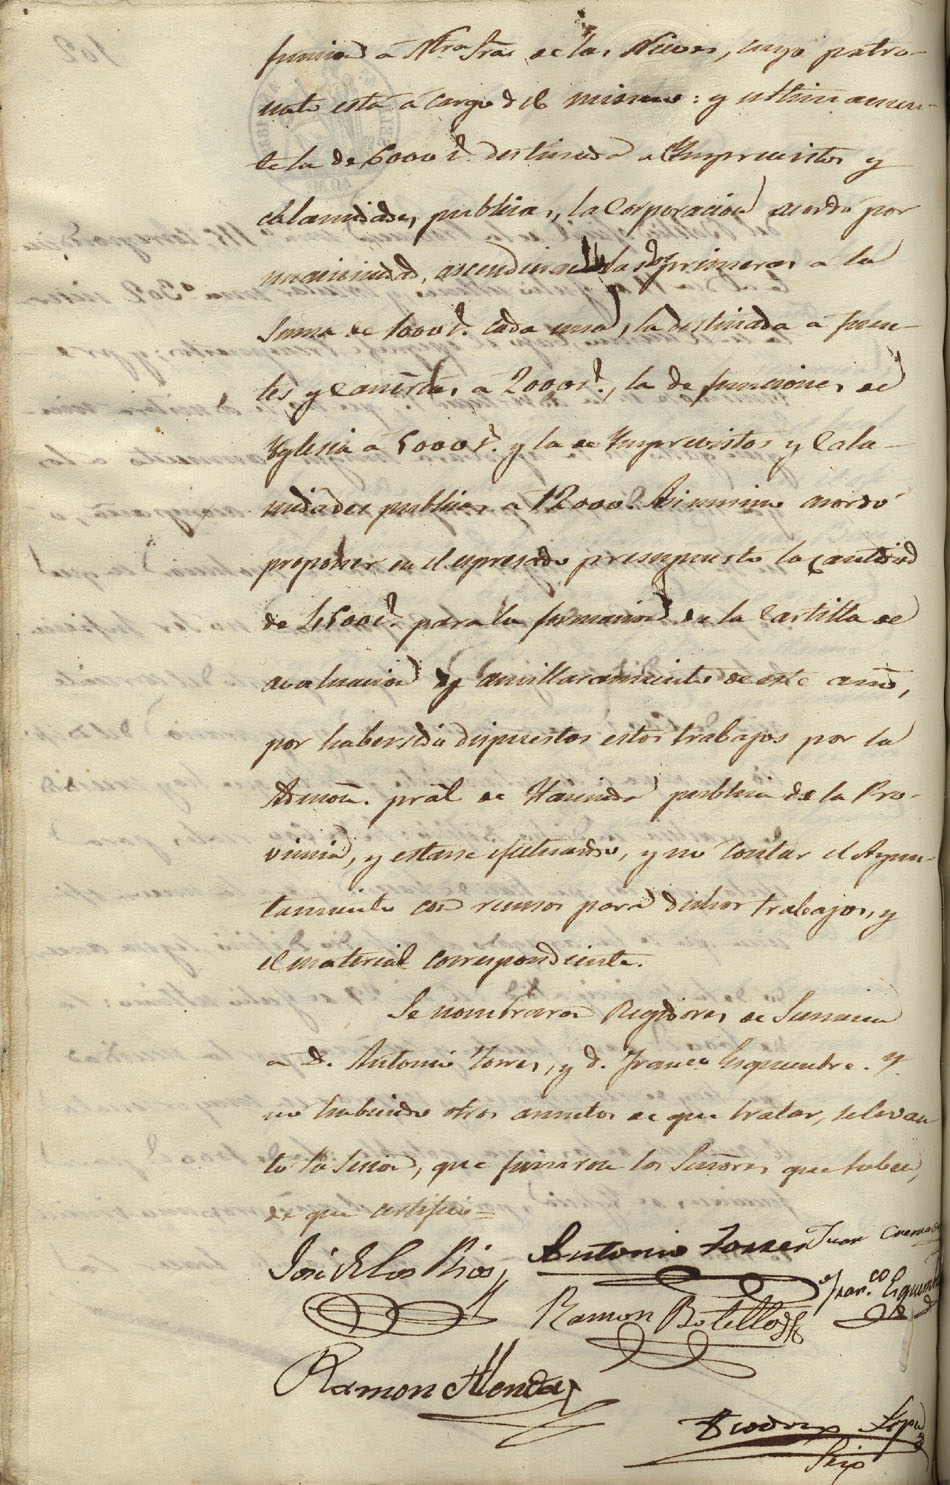 funcion á Ntra Sra de las Nieves, cuyo patro-
nato está á cargo del mismo: y ultimamen-
te la de 6000 r.s destinada á Ymprevistos y
calamidades publicas, la Corporacion acordó por
unanimidad, ascendieran las primeras á la
suma de 1000 r.s cada una, la destinada á fuen-
tes y cañerias á 2000 r.s, la de funciones de
Yglesia á 5000 r.s y la de Ymprevistos y Cala-
midades publicas á 12000. Asimismo acordó
proponer en el espresado presupuesto la cantidad
de 1500 r.s para la formacion de la Cartilla de
evaluacion y amillaramiento de este año,
por haber sido dispuestos estos trabajos por la
Admon. pral de Hacienda publica de la Pro-
vincia, y estarse efectuando, y no contar el Ayun-
tamiento con recursos para dichos trabajos, y
el material correspondiente.
Se nombraron Regidores de Semana
á D. Antonio Torres, y d. Franco Esquembre. Y
no habiendo otros asuntos de que tratar, se levan-
tó la sesion, que firmaron los Señores que saben,
de que certifico=
José de los Rios Antonio Torres Juan
Ramon Botella Fran.co
Ramon Menda
Lopez